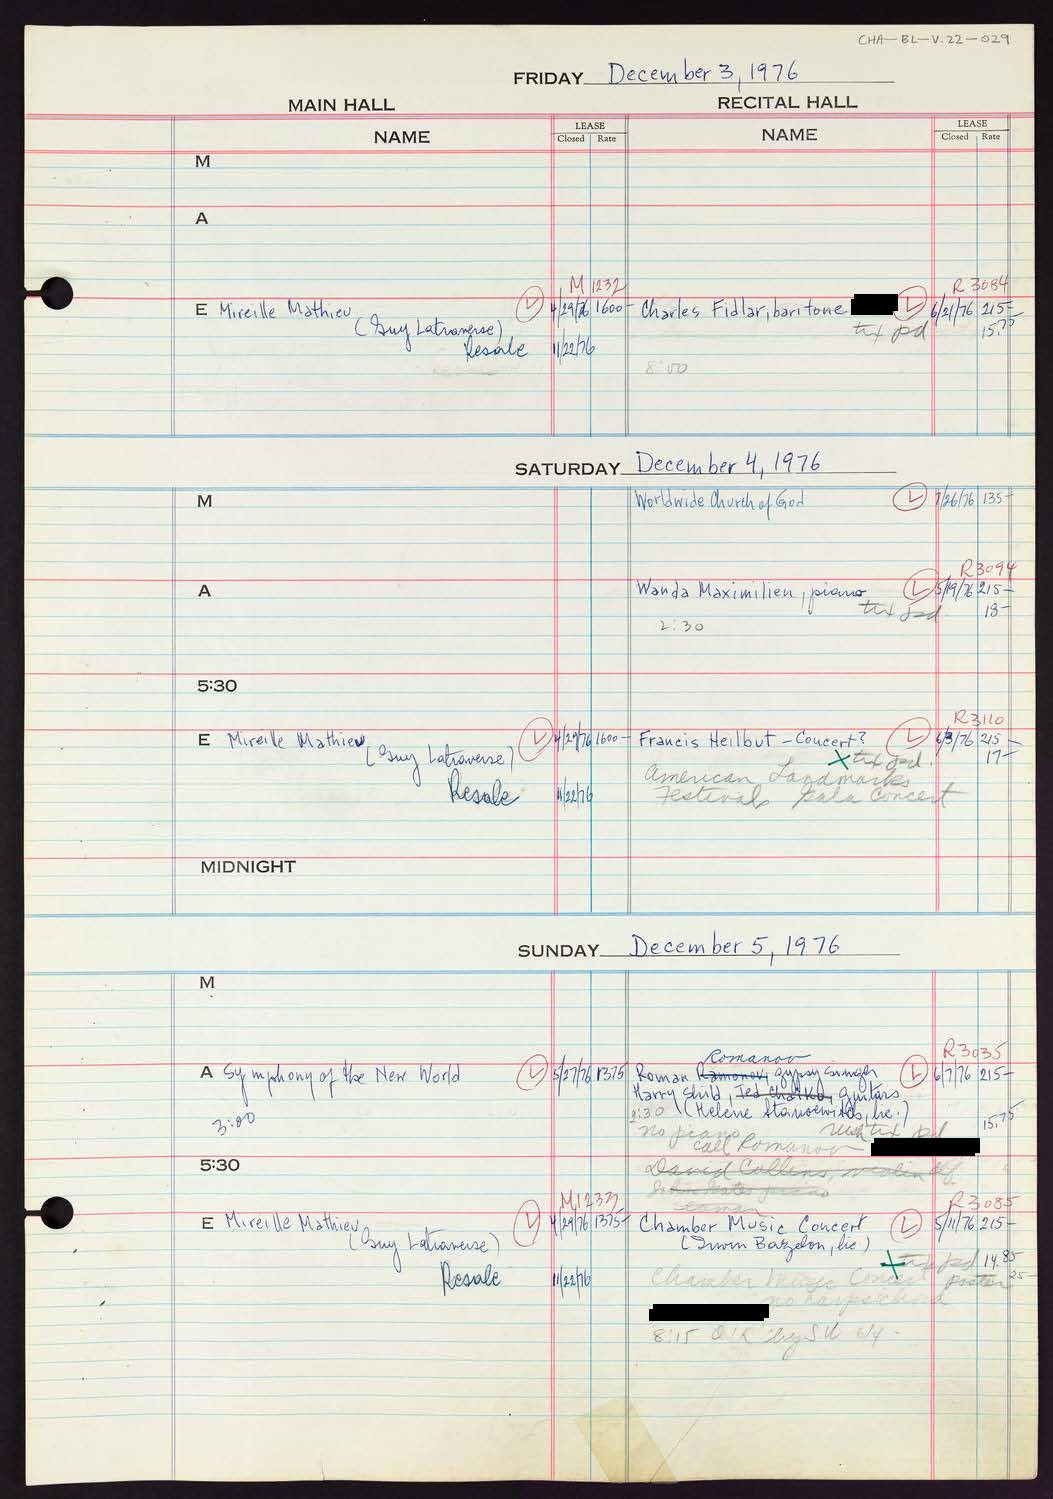 CHA-BL-V.22-029
FRIDAY December 3, 1976
MAIN HALL RECITAL HALL
NAME LEASE Closed Rate NAME LEASE Closed Rate
M
A
M 1232 R 3084
E Mireille Mathieu L 4/29/76 1600- Charles Fidlar, baritone L 6/21/76 215-
(Guy Latraverse) tix pd 15.75
Resale 11/22/76
8:00
SATURDAY December 4, 1976
M Worldwide Church of God L 7/26/76 135-
R3094
A Wanda Maximilien, piano L 5/19/76 215-
tix pd 18-
2:30
5:30
R3110
E Mireille Mathieu L 4/29/76 1600- Francis Heilbut - Concert? L 6/3/76 215-
(Guy Latraverse) x tix pd. 17-
American Landmarks
Resale 11/22/76 Festival Gala Concert
MIDNIGHT
SUNDAY December 5, 1976
M
Romanov R3035
A Symphony of the New World L 5/27/76 1375 Roman Ramonov, gypsy singer L 6/7/76 215-
Harry Shild, Ted guitars
3:00 2:30 (Helene Inc.) 15.75
no piano tix pd
call Romanov
5:30 David Collins, violin
piano
M1233 R3085
E Mireille Mathieu L 4/29/76 1375- Chamber Music Concert L 5/11/76 215-
(Guy Latraverse) (Irwin Bazelon, Inc)
x tix pd 14.85
Resale 11/22/76 Chamber Music Concert poster 25-
no harpsichord
8:15 OK by 6/4-